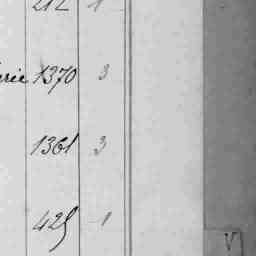 212 1
rie 1370 3
1361 3
425 1
V